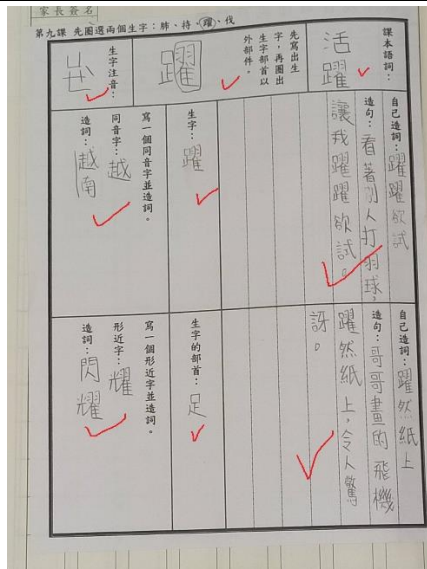 家長簽名
第九課 先圈選兩個生字：肺、待、躍、伐
課本語詞：
活躍
先寫出生
字，再圈出
生字部首以
外部件。
躍
生字注音：
ㄩㄝˋ
自己造詞：躍躍欲試
造句：看著別人打羽球，
讓我躍躍欲試。
生字：躍
寫一個同音字並造詞。
同音字：越
造詞：越南
自己造詞：躍然紙上
造句：哥哥畫的飛機
躍然紙上，令人驚
訝。
生字的部首：足
寫一個形近字並造詞。
形近字：耀
造詞：閃耀